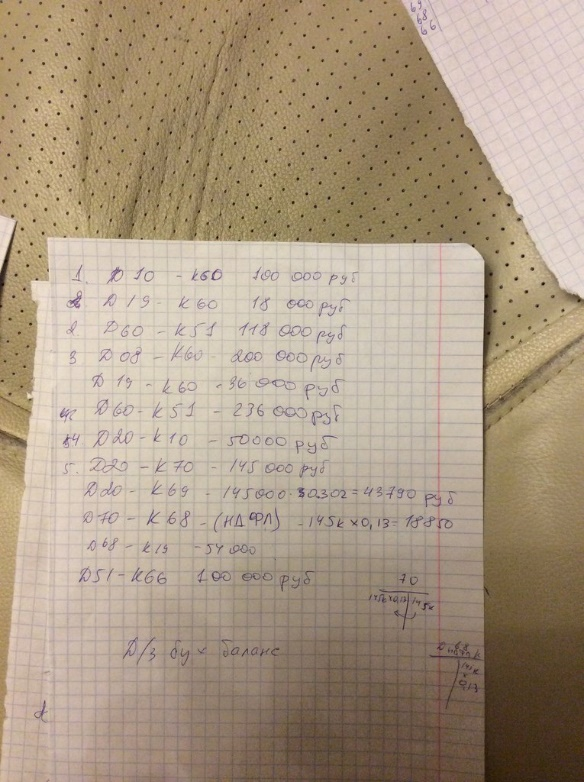 69
68
66
1. D 10 - К60 100 000 руб
D 19 - К60 18 000 руб
2. D60 - К51 118 000 руб
3 D08 - К60 - 200 000 руб
D 19 - К60 - 36 000 руб
D60 - К51 - 236 000 руб
4 D20 - К10 - 50000 руб
5. D20 - К70 - 145 000 руб
D20 - К69 - 145000 · 30302 = 43790 руб
D70 - К68 - (НДФЛ) - 145к x 0,13 = 18850
D68 - К19 - 54 000
D51 - К66 100 000 руб
70
145к x 0,13 145к
68
0,13
D/з бух баланс